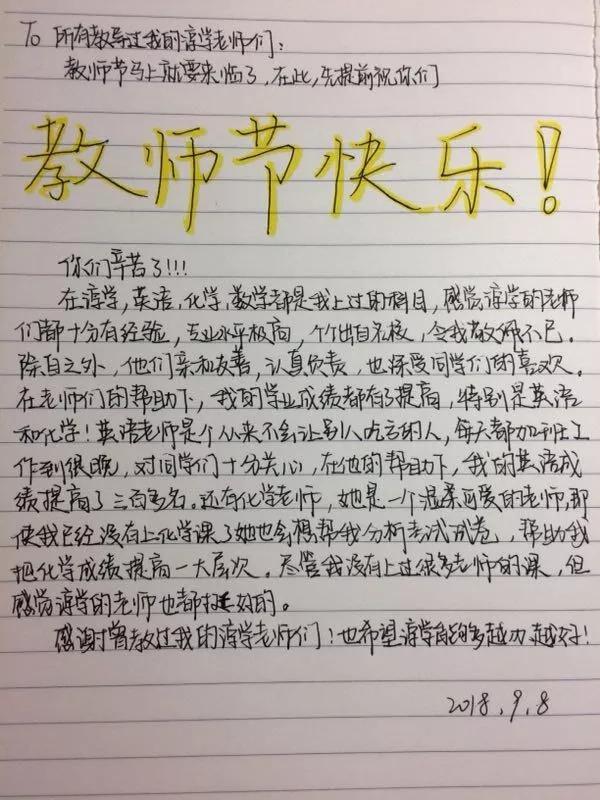 To 所有教导过我的淳学老师们：
教师节马上就要来临了，在此，先提前祝你们
教师节快乐！
你们辛苦了!!!
在淳学，英语，化学，数学都是我上过的科目，感觉淳学的老师
们都十分有经验，专业水平极高，个个出自名校，令我敬佩不已。
除自之外，他们亲和友善，认真负责，也深受同学们的喜欢。
在老师们的帮助下，我的学业成绩都有了提高，特别是英语
和化学！英语老师是个从来不会让别人吃亏的人，每天都加班工
作到很晚，对同学们十分关心，在他的帮助下，我的英语成
绩提高了三百多名。还有化学老师，她是一个温柔可爱的老师，即
使我已经没有上化学课了她也会想帮我分析考试试卷，帮助我
把化学成绩提高一大层次。尽管我没有上过很多老师的课，但
感觉淳学的老师也都挺好的。
感谢曾教过我的淳学老师们！也希望淳学能够越办越好！
2018.9.8